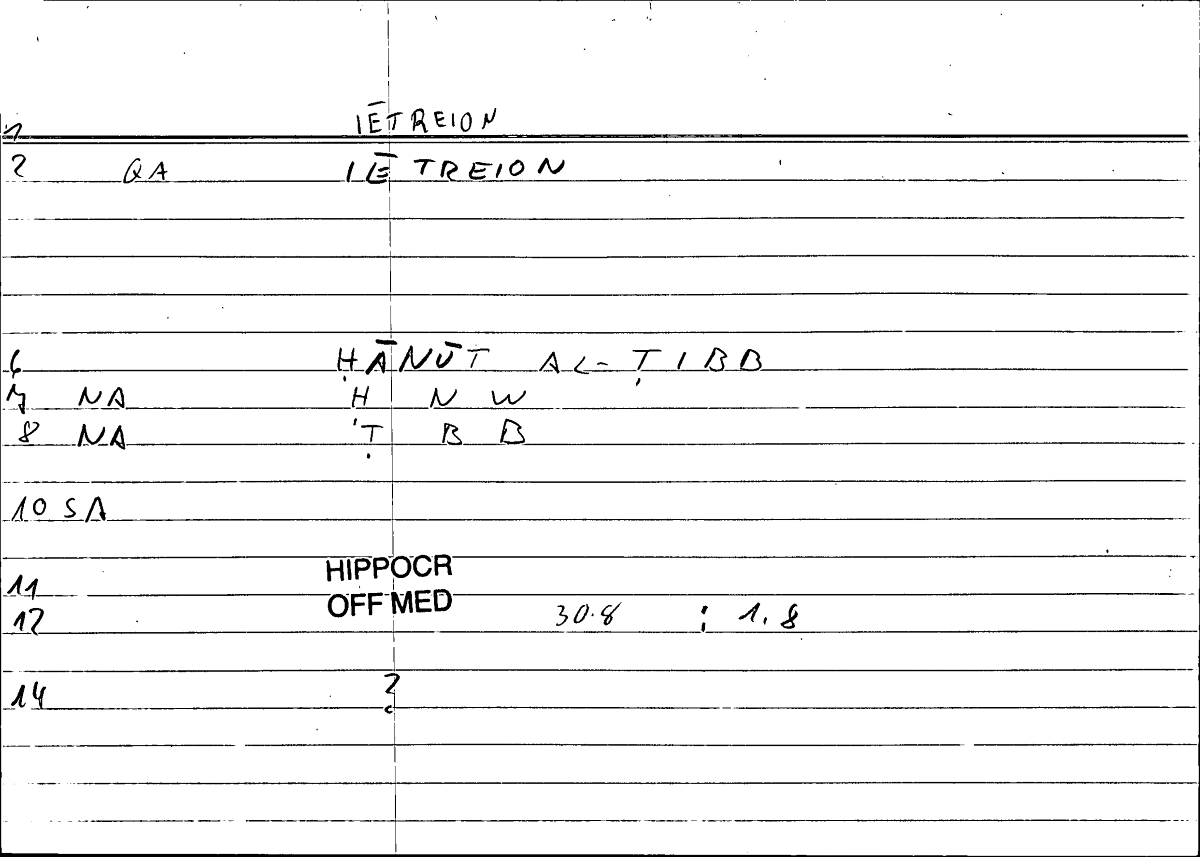 1 IĒTREION
2 QA IĒTREION
6 ḤĀNŪT AL-ṬIBB
7 NA Ḥ N W
8 NA Ṭ B B
10 SA
11 HIPPOCR
12 OFF MED 30.8 ; 1.8
14 ?